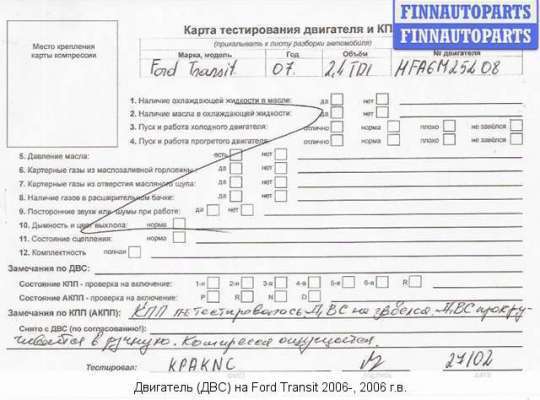 FINNAUTOPARTS
FINNAUTOPARTS
Карта тестирования двигателя и КП
(прикалывать к листу разборки автомобиля)
Место крепления
карты компрессии
Марка, модель Год Объём № двигателя
Ford Transit 07. 2,4 TDI HFA6M25408
1. Наличие охлаждающей жидкости в масле: да нет
2. Наличие масла в охлаждающей жидкости: да нет
3. Пуск и работа холодного двигателя: отлично норма плохо не завёлся
4. Пуск и работа прогретого двигателя: отлично норма плохо не завёлся
5. Давление масла: есть нет
6. Картерные газы из маслозаливной горловины: да нет
7. Картерные газы из отверстия масляного щупа: да нет
8. Наличие газов в расширительном бачке: да нет
9. Посторонние звуки или шумы при работе: да нет
10. Дымность и цвет выхлопа: норма
11. Состояние сцепления: норма
12. Комплектность полная
Замечания по ДВС:
Состояние КПП- проверка на включение: 1-я 2-я 3-я 4-я 5-я 6-я R
Состояние АКПП - проверка на включение: P R N D
Замечания по КПП (АКПП): КПП не тестировалось ДВС не завёлся. ДВС прокру-
Снято с ДВС (по согласованию!):
чивается в ручную. Компрессия ощущается.
Тестировал: KPAKNC 27/02
Двигатель (ДВС) на Ford Transit 2006-, 2006 г.в.